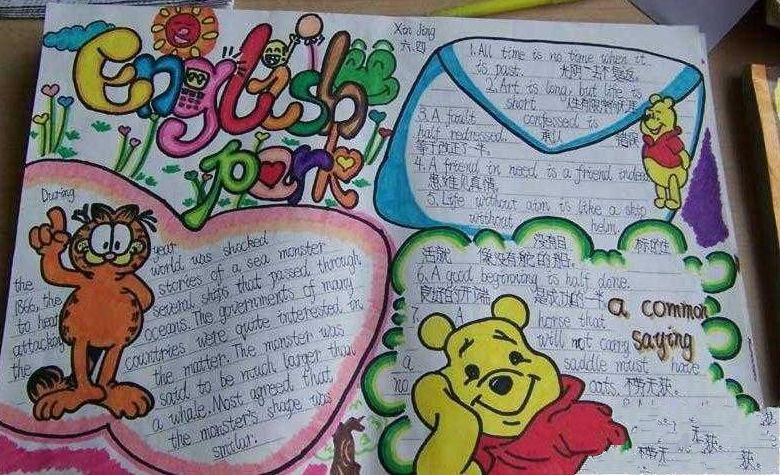 English
park
Xin Jing
六.四
1. All time is no time when it
is past. 光阴一去不复返。
2. Art is long, but life is
short
3. A fault confessed is
half redressed. 承认 错误
等于改正了一半。
4. A friend in need is a friend indeed
患难见真情。
5. Life without aim is like a ship
without helm. 没有目 标的生
活就 像没有舵的船。
6. A good beginning is half done.
良好的开端 是成功的一半
7. A horse that
will not carry
a saddle must have
no oats. 不劳无获。
a common
saying
During
the year
1866, the world was shocked
to hear stories of a sea monster
attacking several ships that passed through
the oceans. The governments of many
countries were quite interested in
the matter. The monster was
said to be much larger than
a whale. Most agreed that
the monster's shape was
similar.